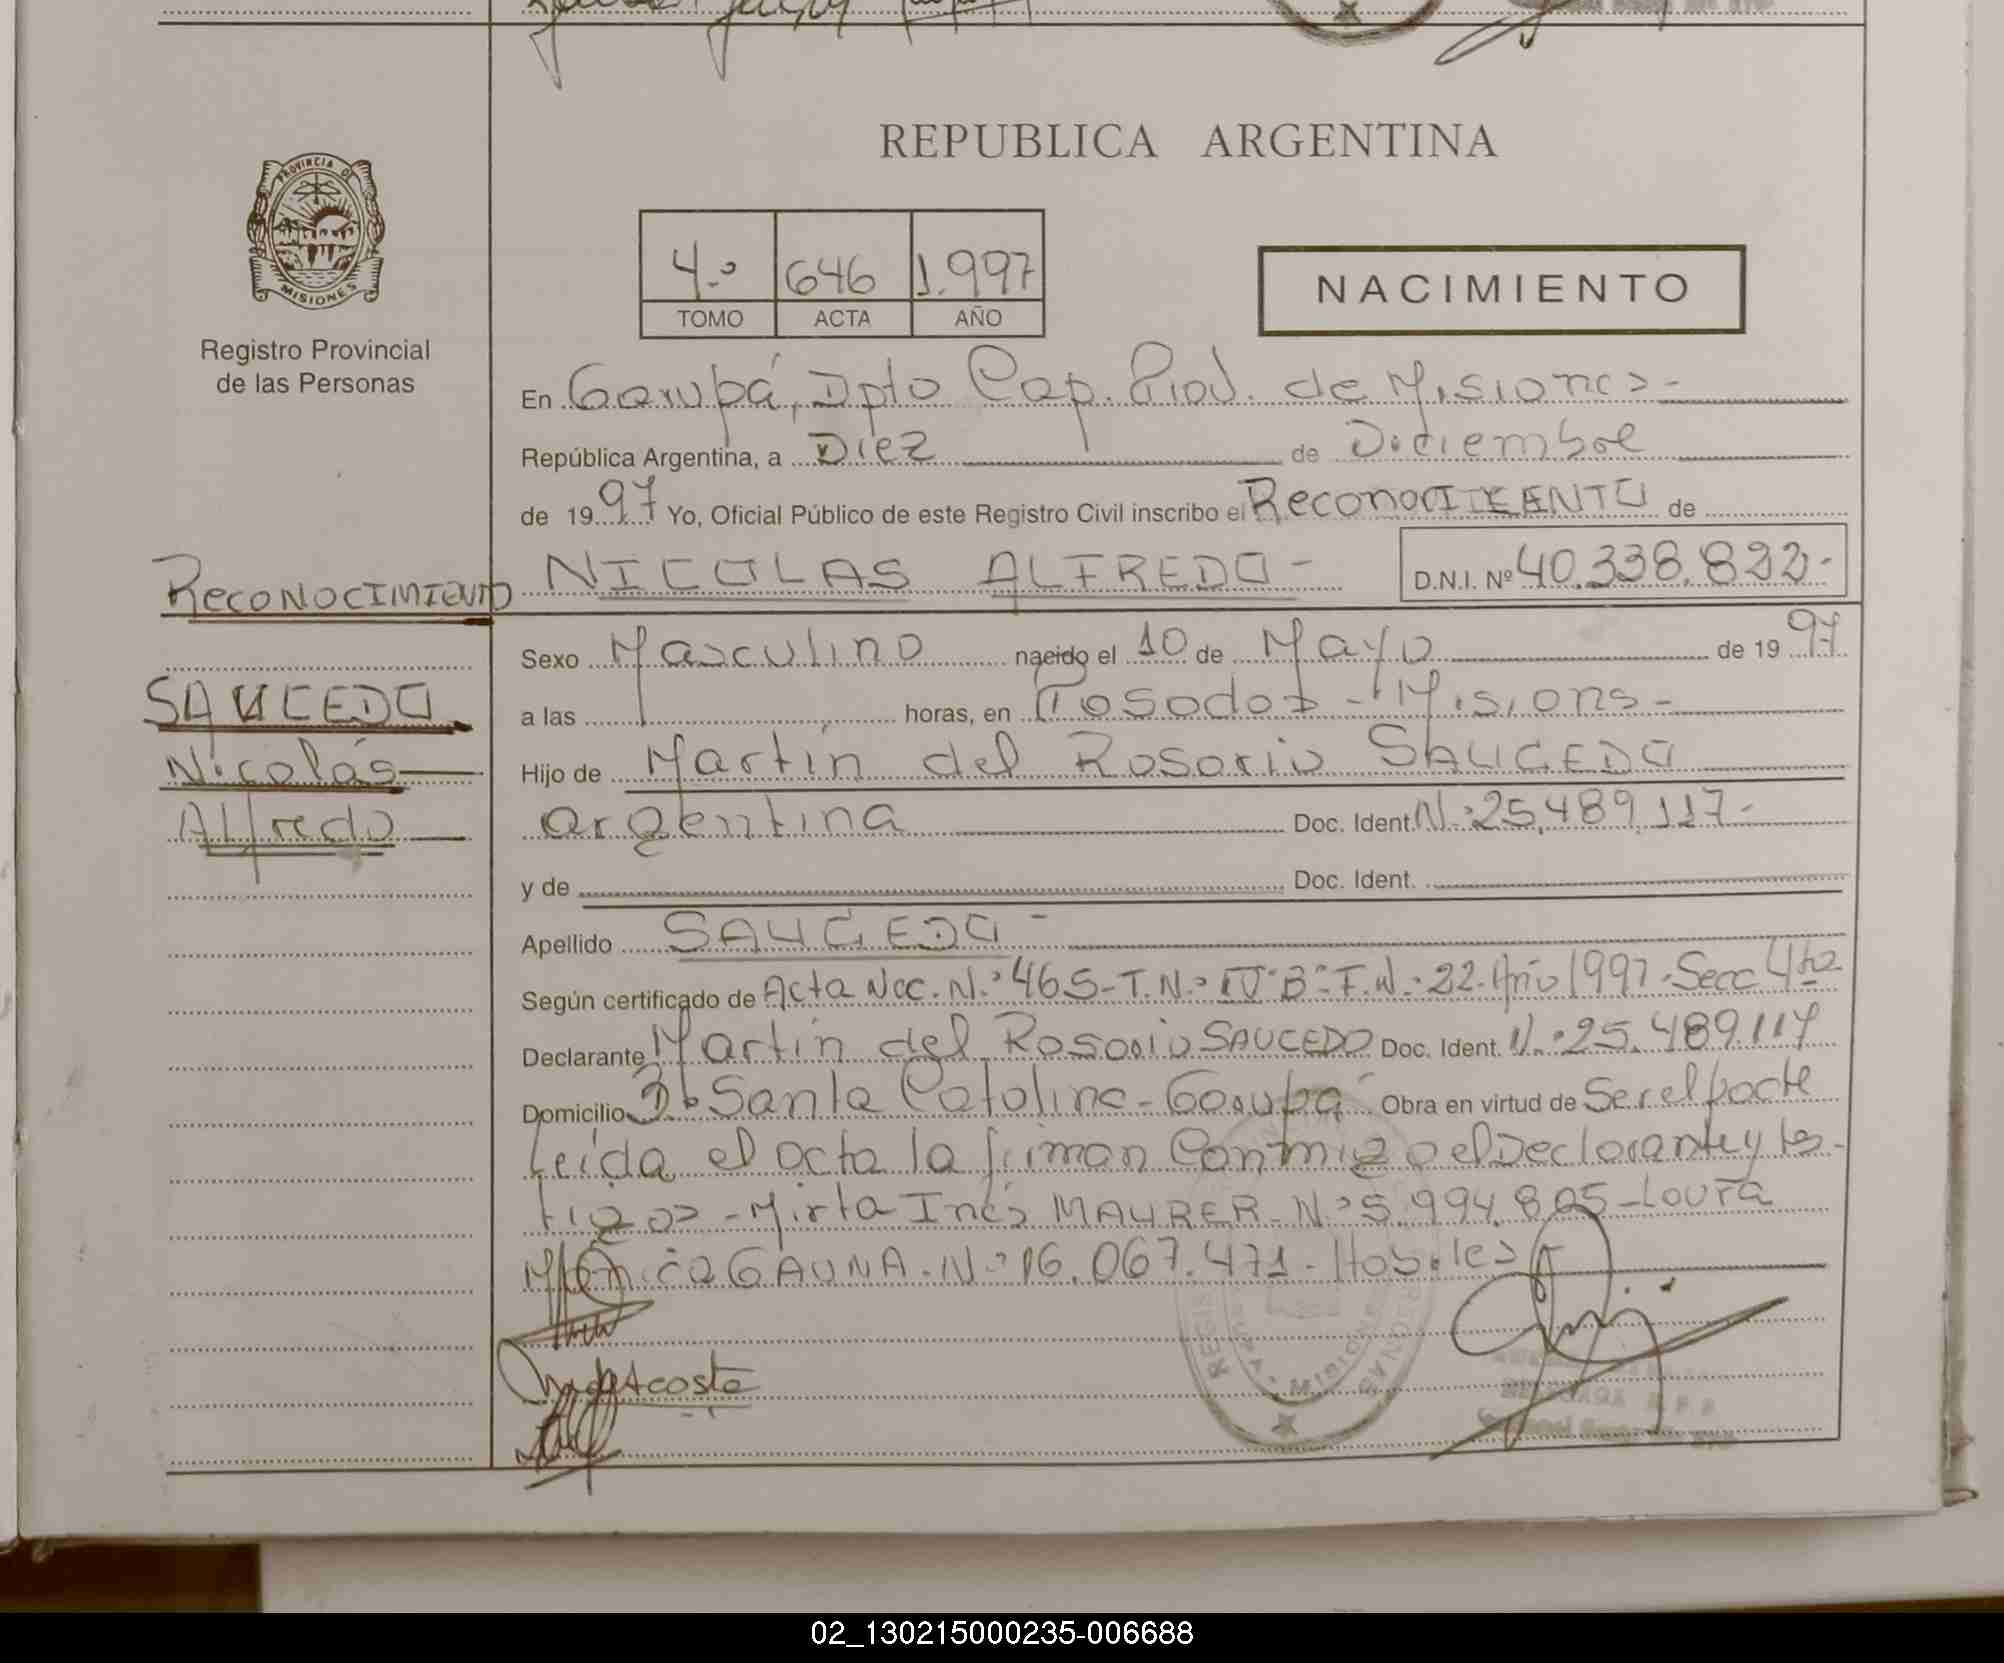 REPUBLICA ARGENTINA
PROVINCIA DE
MISIONES
Registro Provincial
de las Personas
4º 646 1.997
TOMO ACTA AÑO
NACIMIENTO
En Garupá, Dpto Cap. Prov. de Misiones-
República Argentina, a Diez de Diciembre
de 1997 Yo, Oficial Público de este Registro Civil inscribo el Reconocimiento de
NICOLAS ALFREDO- D.N.I. Nº 40.338.822-
RECONOCIMIENTO
Sexo Masculino nacido el 10 de Mayo de 1997
SAUCEDO
a las horas, en Posadas - Misiones-
Nicolás
Hijo de Martín del Rosario SAUCEDO
Alfredo
argentina Doc. Ident. Nº 25.489.117-
y de Doc. Ident.
Apellido SAUCEDO-
Según certificado de Acta Nac. Nº 465-T.Nº IV"B"F.Nº 22-Año 1997-Secc 4ta
Declarante Martín del Rosario SAUCEDO Doc. Ident. Nº 25.489.117
Domicilio Bº Santa Catalina-Garupá Obra en virtud de Ser el
Leída el acta la firman Conmigo el Declarante y tes-
tigos - Mirta Inés MAURER-Nº 5.994.805-Laura
Mónica GAUNA. Nº 16.067.471-Hábiles
Acosta
MISIONES
02_130215000235-006688